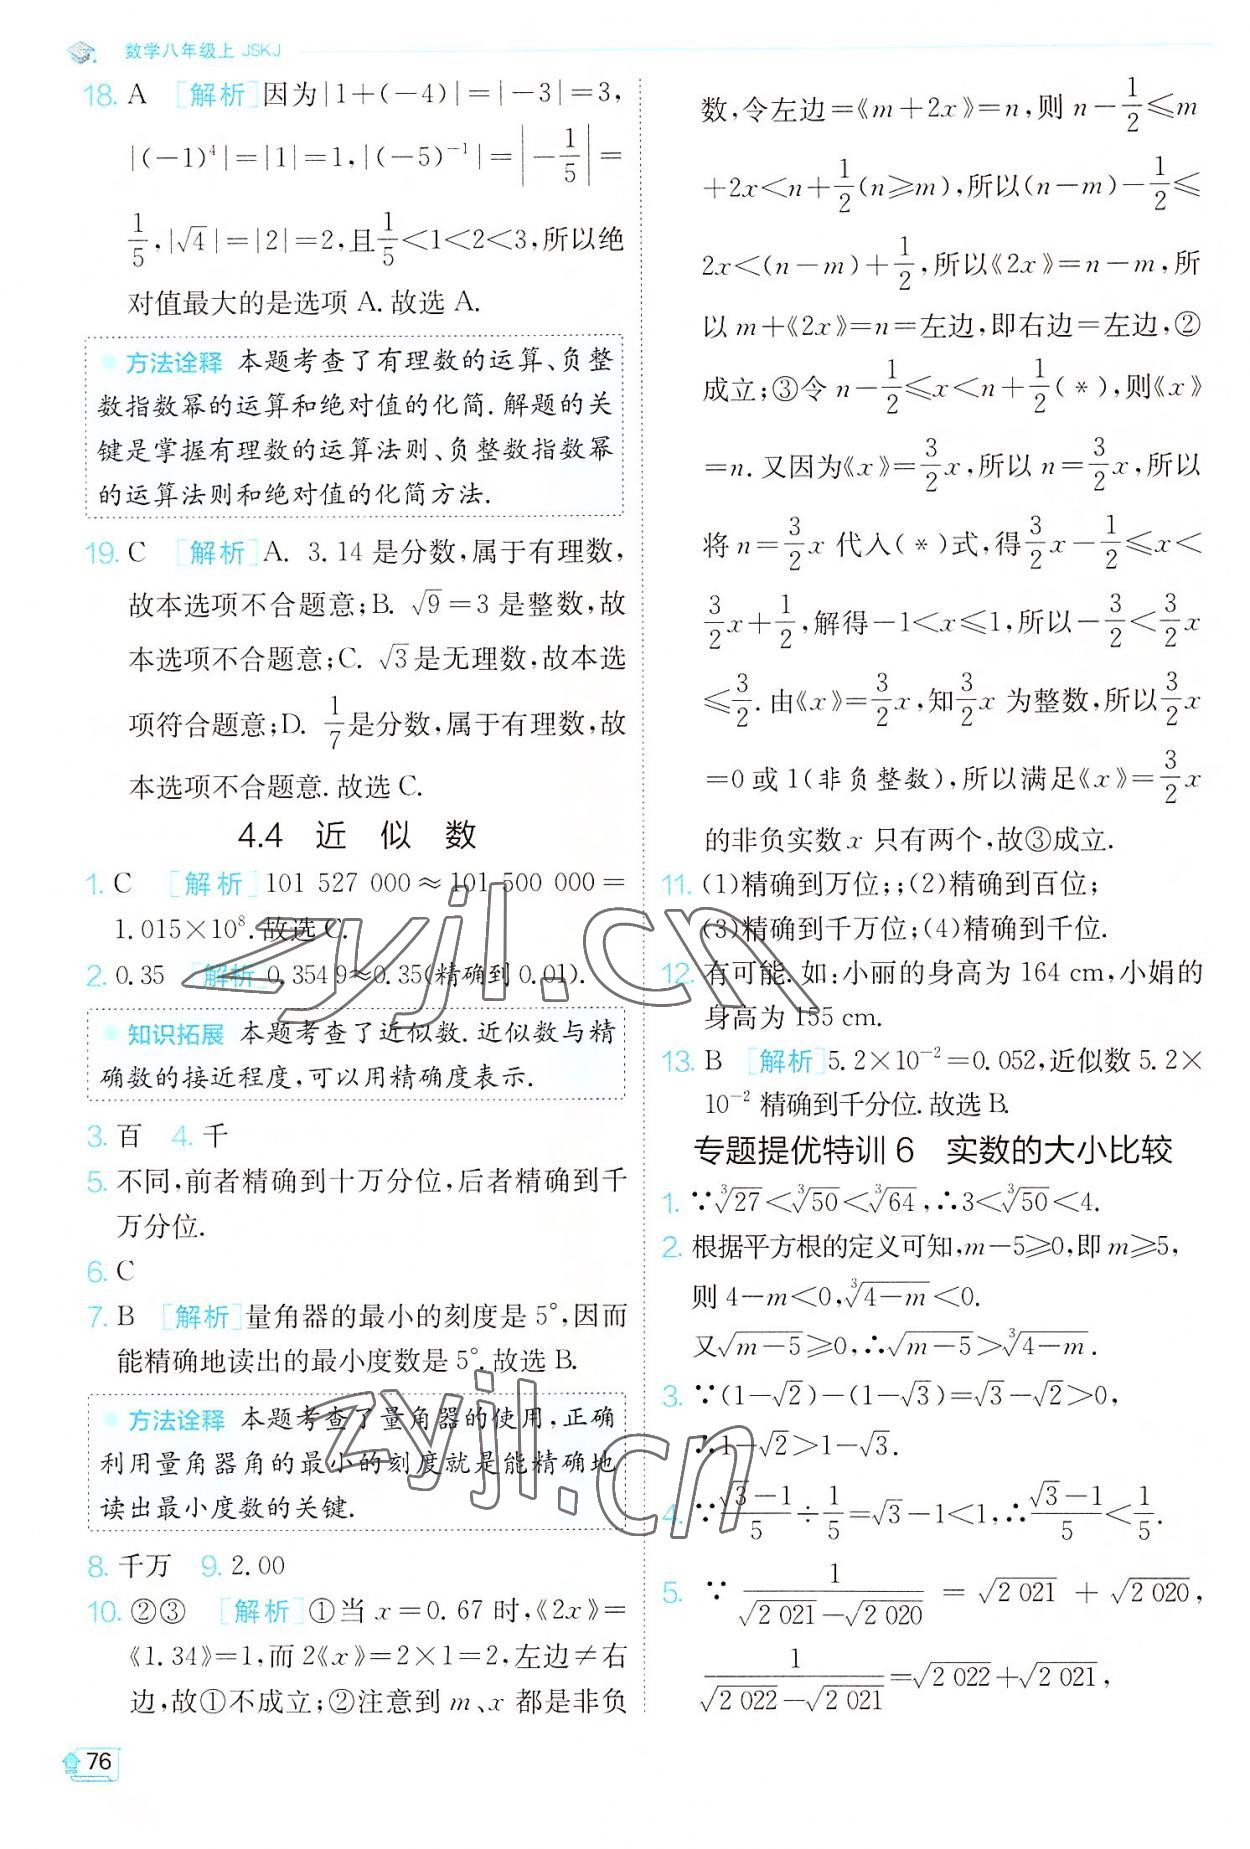 数学八年级上 JSKJ
18. A [解析]因为|1+(-4)|=|-3|=3,
|(-1)⁴|=|1|=1,|(-5)⁻¹|=|-1/5|=
1/5,|√4|=|2|=2,且1/5<1<2<3,所以绝
对值最大的是选项 A.故选 A.
方法诠释 本题考查了有理数的运算、负整
数指数幂的运算和绝对值的化简.解题的关
键是掌握有理数的运算法则、负整数指数幂
的运算法则和绝对值的化简方法.
19. C [解析]A. 3.14 是分数,属于有理数,
故本选项不合题意;B. √9=3 是整数,故
本选项不合题意;C. √3是无理数,故本选
项符合题意;D. 1/7是分数,属于有理数,故
本选项不合题意.故选 C.
4.4 近 似 数
1. C [解析]101 527 000≈101 500 000=
1.015×10⁸.故选 C.
2. 0.35 [解析]0.354 9≈0.35(精确到 0.01).
知识拓展 本题考查了近似数.近似数与精
确数的接近程度,可以用精确度表示.
3. 百 4. 千
5. 不同,前者精确到十万分位,后者精确到千
万分位.
6. C
7. B [解析]量角器的最小的刻度是 5°,因而
能精确地读出的最小度数是 5°.故选 B.
方法诠释 本题考查了量角器的使用,正确
利用量角器角的最小的刻度就是能精确地
读出最小度数的关键.
8. 千万 9. 2.00
10. ②③ [解析]①当 x=0.67 时,《2x》=
《1.34》=1,而 2《x》=2×1=2,左边≠右
边,故①不成立;②注意到 m、x 都是非负
76
数,令左边=《m+2x》=n,则 n-1/2≤m
+2x<n+1/2(n≥m),所以(n-m)-1/2≤
2x<(n-m)+1/2,所以《2x》=n-m,所
以 m+《2x》=n=左边,即右边=左边,②
成立;③令 n-1/2≤x<n+1/2(*),则《x》
=n.又因为《x》=3/2x,所以 n=3/2x,所以
将 n=3/2x 代入(*)式,得3/2x-1/2≤x<
3/2x+1/2,解得-1<x≤1,所以-3/2<3/2x
≤3/2.由《x》=3/2x,知3/2x 为整数,所以3/2x
=0 或 1(非负整数),所以满足《x》=3/2x
的非负实数 x 只有两个,故③成立.
11. (1)精确到万位;;(2)精确到百位;
(3)精确到千万位;(4)精确到千位.
12. 有可能.如:小丽的身高为 164 cm,小娟的
身高为 155 cm.
13. B [解析]5.2×10⁻²=0.052,近似数 5.2×
10⁻² 精确到千分位.故选 B.
专题提优特训 6 实数的大小比较
1. ∵∛27<∛50<∛64,∴3<∛50<4.
2. 根据平方根的定义可知,m-5≥0,即 m≥5,
则 4-m<0,∛(4-m)<0.
又√(m-5)≥0,∴√(m-5)>∛(4-m).
3. ∵(1-√2)-(1-√3)=√3-√2>0,
∴1-√2>1-√3.
4. ∵(√3-1)/5÷1/5=√3-1<1,∴(√3-1)/5<1/5.
5. ∵ 1/(√2 021-√2 020) = √2 021 + √2 020,
1/(√2 022-√2 021)=√2 022+√2 021,
zyjl.cn
zyjl.cn